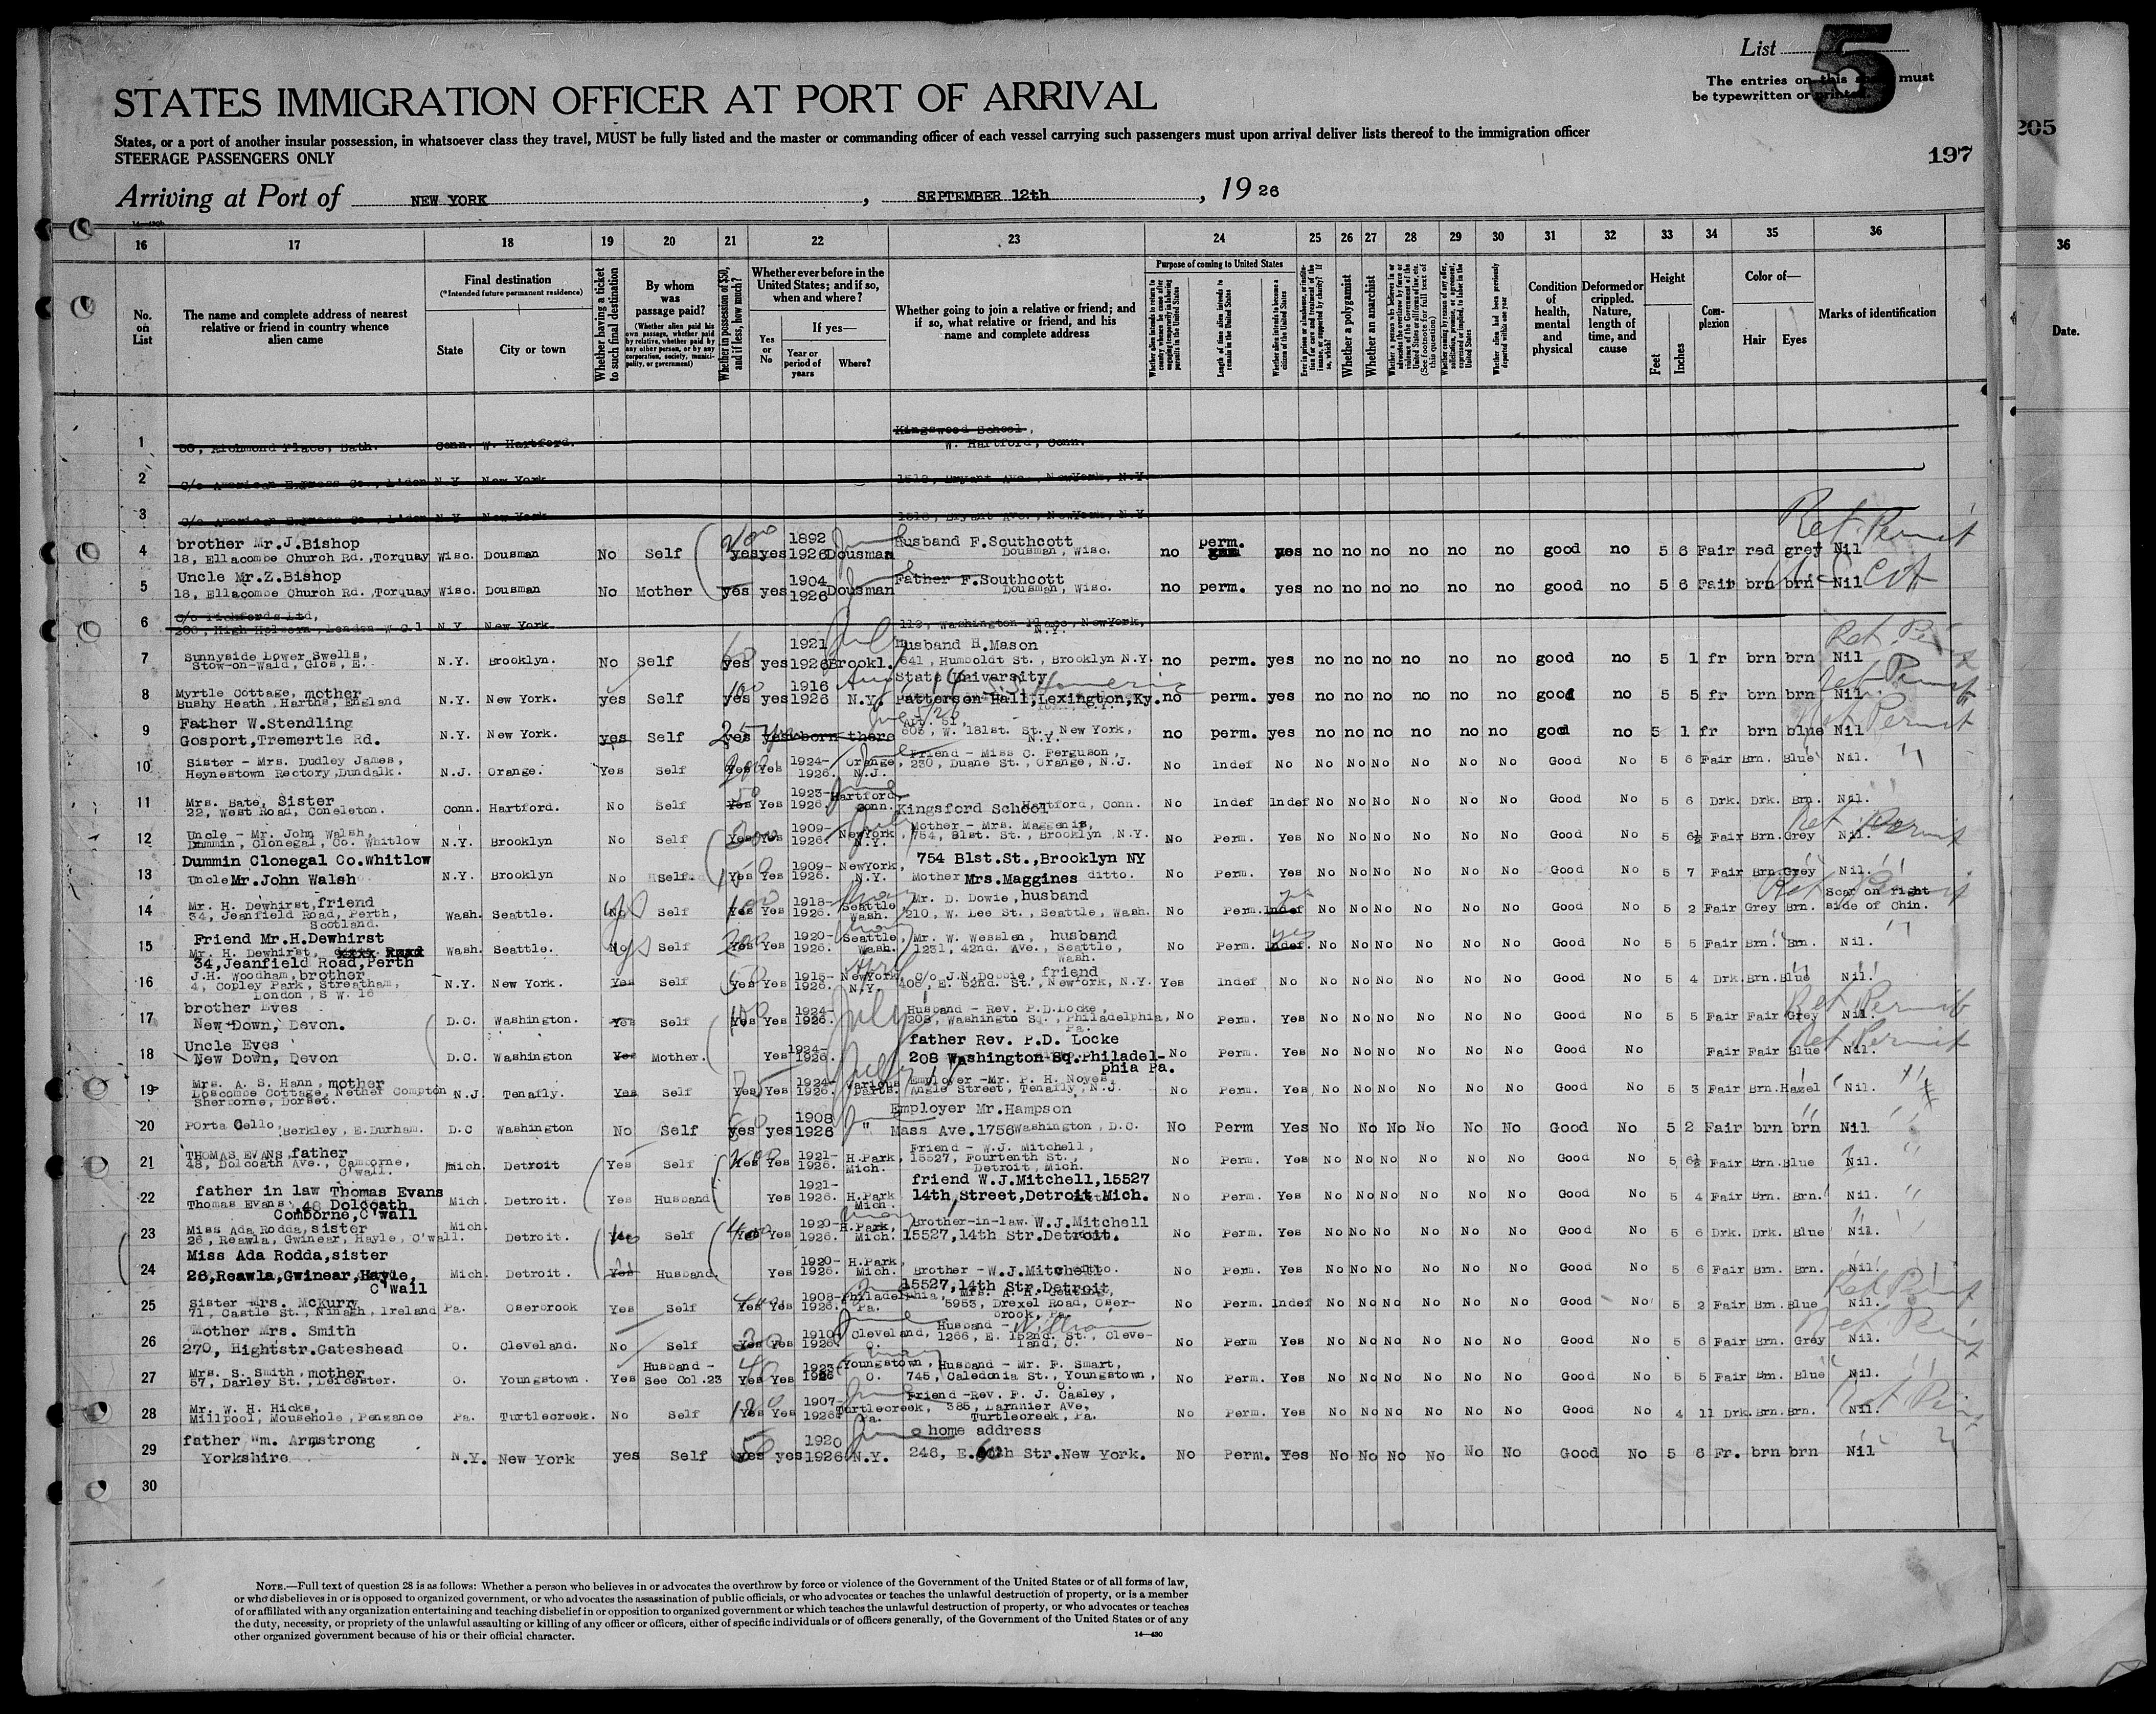 List 5
The entries on this sheet must
be typewritten or printed.
STATES IMMIGRATION OFFICER AT PORT OF ARRIVAL
States, or a port of another insular possession, in whatsoever class they travel, MUST be fully listed and the master or commanding officer of each vessel carrying such passengers must upon arrival deliver lists thereof to the immigration officer
STEERAGE PASSENGERS ONLY
205
197
Arriving at Port of NEW YORK, SEPTEMBER 12th, 1926
16 17 18 19 20 21 22 23 24 25 26 27 28 29 30 31 32 33 34 35 36
36
No. on List
The name and complete address of nearest relative or friend in country whence alien came
Final destination
(*Intended future permanent residence)
State
City or town
Whether having a ticket to such final destination
By whom was passage paid?
(Whether alien paid his own passage, whether paid by relative, whether paid by any other person, or by any corporation, society, municipality, or government)
Whether in possession of $50, and if less, how much?
Whether ever before in the United States; and if so, when and where?
Yes or No
If yes—
Year or period of years
Where?
Whether going to join a relative or friend; and if so, what relative or friend, and his name and complete address
Purpose of coming to United States
Length of time alien intends to remain in the United States
Whether alien intends to become a citizen of the United States
Whether a polygamist
Whether an anarchist
Condition of health, mental and physical
Deformed or crippled. Nature, length of time, and cause
Height
Feet
Inches
Complexion
Color of—
Hair
Eyes
Marks of identification
Date.
1 Richmond Place, Bath. Conn. W. Hartford. Kingswood School, W. Hartford, Conn.
2 C/o American Express Co., L'don N.Y. New York 1518, Bryant Ave., NewYork, N.Y.
3 C/o American Express Co., L'don N.Y. New York 1518, Bryant Ave., NewYork, N.Y.
4 brother Mr.J.Bishop
18, Ellacombe Church Rd.,Torquay Wisc. Dousman No Self yes yes 1892 1926 Dousman Husband F.Southcott Dousman, Wisc. no perm. yes no no no no no no good no 5 6 Fair red grey Nil Ret. Permit
5 Uncle Mr.Z.Bishop
18, Ellacombe Church Rd.,Torquay Wisc. Dousman No Mother yes yes 1904 1926 Dousman Father F.Southcott Dousman, Wisc. no perm. yes no no no no no no good no 5 6 Fair brn brn Nil
6 C/o Pickfords Ltd,
206, High Holborn, London W.C.1 N.Y. New York 119, Washington Place, NewYork, N.Y.
7 Sunnyside Lower Swells,
Stow-on-Wald, Glos, E. N.Y. Brooklyn. No Self yes yes 1921 1926 Brookl. Husband H.Mason 641, Humboldt St., Brooklyn N.Y. no perm. yes no no no no no no good no 5 1 fr brn brn Nil
8 Myrtle Cottage, mother
Bushy Heath, Harths, England N.Y. New York. yes Self 100 yes yes 1916 1926 N.Y. State University Patterson Hall,Lexington,Ky. no perm. yes no no no no no no good no 5 5 fr brn brn Nil. Ret Permit
9 Father W.Stendling
Gosport,Tremertle Rd. N.Y. New York. yes Self yes yes born there Apt. 51, 603, W. 181st. St. New York, N.Y. no perm. yes no no no no no no good no 5 1 fr brn blue Nil Ret Permit
10 Sister - Mrs. Dudley James,
Heynestown Rectory,Dundalk. N.J. Orange. Yes Self Yes Yes 1924-1926. Orange, N.J. Friend - Miss C. Ferguson, 230, Duane St., Orange, N.J. No Indef No No No No No No No Good No 5 6 Fair Brn. Blue Nil.
11 Mrs. Bate, Sister
22, West Road, Congleton. Conn. Hartford. No Self 50 Yes Yes 1923-1926. Hartford, Conn. Kingsford School Hartford, Conn. No Indef Indef No No No No No No Good No 5 6 Drk. Drk. Brn. Nil.
12 Uncle - Mr. John Walsh,
Dummin, Clonegal, Co. Whitlow N.Y. Brooklyn No Self Yes Yes 1909-1926. NewYork, N.Y. Mother - Mrs. Maggenis, 754, 81st. St., Brooklyn, N.Y. No Perm. Yes No No No No No No Good No 5 6½ Fair Brn. Grey Nil. Ret Permit
13 Dummin Clonegal Co.Whitlow
Uncle Mr.John Walsh N.Y. Brooklyn No Self. Yes Yes 1909-1926. NewYork, N.Y. 754 Blst.St.,Brooklyn NY Mother Mrs.Maggines ditto. No Perm. Yes No No No No No No Good No 5 7 Fair Brn. Grey Nil.
14 Mr. H. Dewhirst, friend
34, Jeanfield Road, Perth,
Scotland. Wash. Seattle. No Self Yes Yes 1918-1926. Seattle Wash. Mr. D. Dowie, husband 210, W. Lee St., Seattle, Wash. No Perm. Indef yes No No No No No No Good No 5 2 Fair Grey Brn. Scar on right side of Chin.
15 Friend Mr.H.Dewhirst
Mr. H. Dewhirst, Road
34,Jeanfield Road,Perth Wash. Seattle. No Self Yes Yes 1920-1926. Seattle, Wash. Mr. W. Wesslen, husband 1231, 42nd. Ave., Seattle, Wash. No Perm. Indef. yes No No No No No No Good No 5 5 Fair Brn. Brn. Nil.
16 J.H. Woodham, brother
4, Copley Park, Streatham,
London, S W. 16 N.Y. New York. Yes Self 50 Yes Yes 1915-1926. NewYork, N.Y. C/o J.N.Dobbie, friend 406, E. 52nd. St., New York, N.Y. Yes Indef No No No No No No No Good No 5 4 Drk. Brn. Blue Nil.
17 brother Eves
New Down, Devon. D.C. Washington. Yes Self 100 Yes Yes 1924-1926. July Husband - Rev. P.D.Locke, 208, Washingtn Sq., Philadelphia, Pa. No Perm. Yes No No No No No No Good No 5 5 Fair Fair Grey Nil. Ret Permit
18 Uncle Eves
New Down, Devon D.C. Washington Yes Mother. Yes 1924-1926. father Rev. P.D. Locke 208 Washington Sq.Philadel-phia Pa. No Perm. Yes No No No No No No Good No Fair Fair Blue Nil. Ret Permit
19 Mrs. A. S. Hann, mother
Loscombe Cottage, Nether Compton
Sherborne, Dorset. N.J. Tenafly. Yes Self Yes Yes 1924-1926. Various parts. Employer -Mr. P. H. Noyes, Angle Street, Tenafly, N.J. No Perm. Yes No No No No No No Good No 5 3 Fair Brn. Hazel Nil.
20 Porta Cello, Berkley, E.Durham. D.C Washington No Self yes yes 1908 1926 " Employer Mr.Hampson Mass Ave.1756 Washington, D.C. No Perm Yes No No No No No No Good No 5 2 Fair brn brn Nil
21 THOMAS EVANS, father
48, Dolcoath Ave., Camborne,
C'wall. Mich. Detroit Yes Self Yes Yes 1921-1926. H.Park, Mich. Friend - W.J. Mitchell, 15527, Fourtenth St., Detroit, Mich. No Perm. Yes No No No No No No Good No 5 6½ Fair Brn. Blue Nil.
22 father in law Thomas Evans
Thomas Evans, 48 Dolcoath
Comborne,C'wall Mich. Detroit. Yes Husband Yes 1921-1926. H.Park Mich. friend W.J.Mitchell,15527 14th Street,Detroit Mich. No Perm. Yes No No No No No No Good No 5 4 Fair Brn. Brn. Nil.
23 Miss Ada Rodda, sister
26, Reawla, Gwinear, Hayle, C'wall. Mich. Detroit. Yes Self Yes Yes 1920-1926. H.Park, Mich. Brother-in-law. W.J.Mitchell 15527,14th Str.Detroit. No Perm. Yes No No No No No No Good No 5 6 Drk. Drk. Blue Nil.
24 Miss Ada Rodda,sister
26,Reawla,Gwinear,Hayle,
C'wall Mich. Detroit. Yes Husband. Yes 1920-1926. H.Park, Mich. Brother -W.J.Mitchell 15527,14th Str.Detroit No Perm. Yes No No No No No No Good No 5 6 Fair Brn. Brn. Nil.
25 Sister Mrs. McKurry
71, Castle St., Ninagh, Ireland Pa. Oserbrook Yes Self Yes Yes 1908-1926. Philadelphia, Pa. 5953, Drexel Road, Oser-brook, Pa. No Perm. Indef No No No No No No Good No 5 2 Fair Brn. Blue Nil.
26 Mother Mrs. Smith
270, Hightstr.Gateshead O. Cleveland. No Self Yes Yes 1910 1926 Cleveland, O. Husband - William 1266, E. 152nd. St., Cleve-land, O. No Perm Yes No No No No No No Good No 5 6 Fair Brn. Grey Nil.
27 Mrs. S. Smith, mother
57, Darley St., Leicester. O. Youngstown. Yes Husband - See Col.23 40 Yes Yes 1923-1926 Youngstown, O. Husband - Mr. F. Smart, 745, Caledonia St., Youngstown, O. No Perm. Yes No No No No No No Good No 5 5 Fair Brn. Blue Nil.
28 Mr. W. H. Hicks,
Millpool, Mousehole, Pengance Pa. Turtlecreek. No Self Yes Yes 1907-1926. Turtlecreek, Pa. Friend -Rev. F. J. Casley, 385, Larnnier Ave, Turtlecreek, Pa. No Perm. Yes No No No No No No Good No 4 11 Drk. Brn. Brn. Nil.
29 father Wm. Armstrong
Yorkshire N.Y. New York yes Self 50 yes yes 1920 1926 June N.Y. home address 246, E. 60th Str.New York. No Perm. Yes No No No No No No Good No 5 6 Fr. brn brn Nil
30
NOTE.—Full text of question 28 is as follows: Whether a person who believes in or advocates the overthrow by force or violence of the Government of the United States or of all forms of law,
or who disbelieves in or is opposed to organized government, or who advocates the assassination of public officials, or who advocates or teaches the unlawful destruction of property, or is a member
of or affiliated with any organization entertaining and teaching disbelief in or opposition to organized government or which teaches the unlawful destruction of property, or who advocates or teaches
the duty, necessity, or propriety of the unlawful assaulting or killing of any officer or officers, either of specific individuals or of officers generally, of the Government of the United States or of any
other organized government because of his or their official character.
14—430